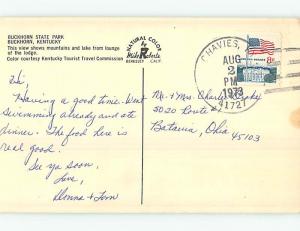 BUCKHORN STATE PARK
BUCKHORN, KENTUCKY
This view shows mountains and lake from lounge
of the lodge.
Color courtesy Kentucky Tourist Travel Commission
NATURAL COLOR
by
Mike Roberts
BERKELEY CALIF.
CHAVIES,
AUG
2
PM
1973
41727
8c
Hi,
Having a good time. Went
swimming already and ate
dinner. The food here is
real good.
See ya soon,
Love,
Donna + Tom
Mr. + Mrs. Charles
5020 Route
Batavia, Ohio
45103